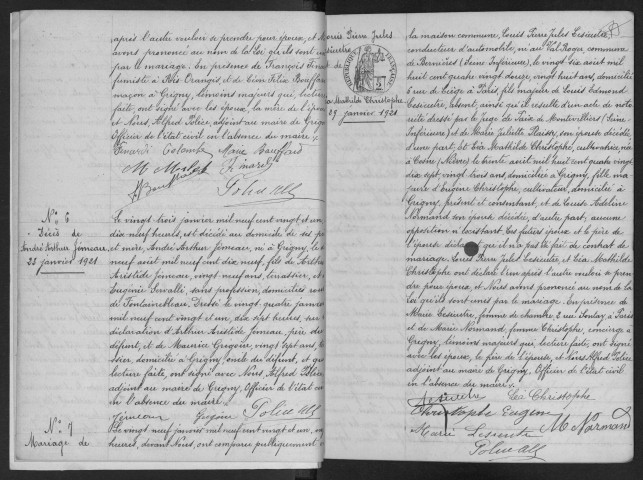 après l'autre vouloir se prendre pour époux, et
avons prononcé au nom de la Loi qu'ils sont un
par le mariage. En présence de François
fumiste à Ris Orangis, et de Félix Bouffar
maçon à Grigny, témoins majeurs qui, lecture
faite, ont signé avec les époux, la mère de l'épou
et Nous, Alfred Police, adjoint au maire de Grign
Officier de l'état civil en l'absence du maire.
Marie Bouffard
Police Alf
N° 6
Décès de
André Arthur Jimeau,
23 janvier 1921
Le vingt trois janvier mil neuf cent vingt et un
dix neuf heures, est décédé au domicile de ses pè
et mère, André Arthur Jimeau, né à Grigny, le
neuf août mil neuf cent dix neuf, fils de Arth
Aristide Jimeau, vingt neuf ans, terrassier, et
Eugénie, sans profession, domiciliés rou
de Fontainebleau. Dressé le vingt quatre janvi
mil neuf cent vingt et un, dix sept heures, sur
déclaration d'Arthur Aristide Jimeau, père du
défunt, et de Maurice Grégoire, vingt sept ans,
domicilié à Grigny, oncle du défunt, et qui
lecture faite, ont signé avec Nous, Alfred Police
adjoint au maire de Grigny, Officier de l'état civ
en l'absence du maire.
Jimeau Grégoire Police Alf
N° 7
Mariage de
Le vingt neuf janvier mil neuf cent vingt et un,
heures, devant Nous, ont comparu publiquement
Pierre Jules
Lesieutre
&
Léa Mathilde Christophe
29 janvier 1921
la maison commune, Louis Pierre Jules Lesieutre
conducteur d'automobile, né au Val Roger, commune
de (Seine Inférieure), le vingt six août mil
huit cent quatre vingt douze, vingt huit ans, domicilié
rue de Liège à Paris, fils majeur de Louis Edmond
Lesieutre, absent, ainsi qu'il résulte d'un acte de noto
riété dressé par le Juge de Paix de Montivilliers (Seine
Inférieure) et de Marie Juliette, son épouse décédée,
d'une part, et Léa Mathilde Christophe, cultivatrice, née
à Cosne (Nièvre) le trente août mil huit cent quatre vingt
dix sept, vingt trois ans, domiciliée à Grigny, fille ma
jeure d'Eugène Christophe, cultivateur, domicilié à
Grigny, présent et consentant, et de Adeline
Normand son épouse décédée, d'autre part, aucune
opposition n'existant. Les futurs époux et le père de
l'épouse déclarent qu'il n'a pas été fait de contrat de
mariage. Louis Pierre Jules Lesieutre, et Léa Mathilde
Christophe ont déclaré l'un après l'autre vouloir se pren
dre pour époux, et Nous avons prononcé au nom de la
Loi qu'ils sont unis par le mariage. En présence de
Marie Lesieutre, femme de chambre, à Paris
et de Marie Normand, femme Christophe, concierge à
Grigny, témoins majeurs qui, lecture faite, ont signé
avec les époux, le père de l'épouse, et Nous Alfred Police
adjoint au maire de Grigny, Officier de l'état civil
en l'absence du maire.
Lesieutre Léa Christophe
Christophe Eugène
Marie Lesieutre M Normand
Police Alf